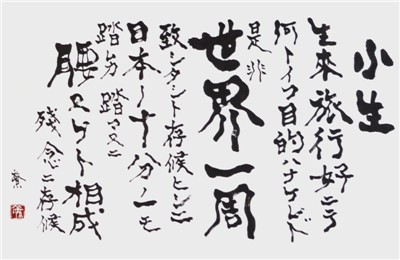 小生
生來旅行好ニテ
何トイフ目的ハナケレド
是非
世界一周
致シタシト存候ヒシニ
日本ノ十分ノ一モ
踏マヌニ
腰ヌケト相成
殘念ニ存候